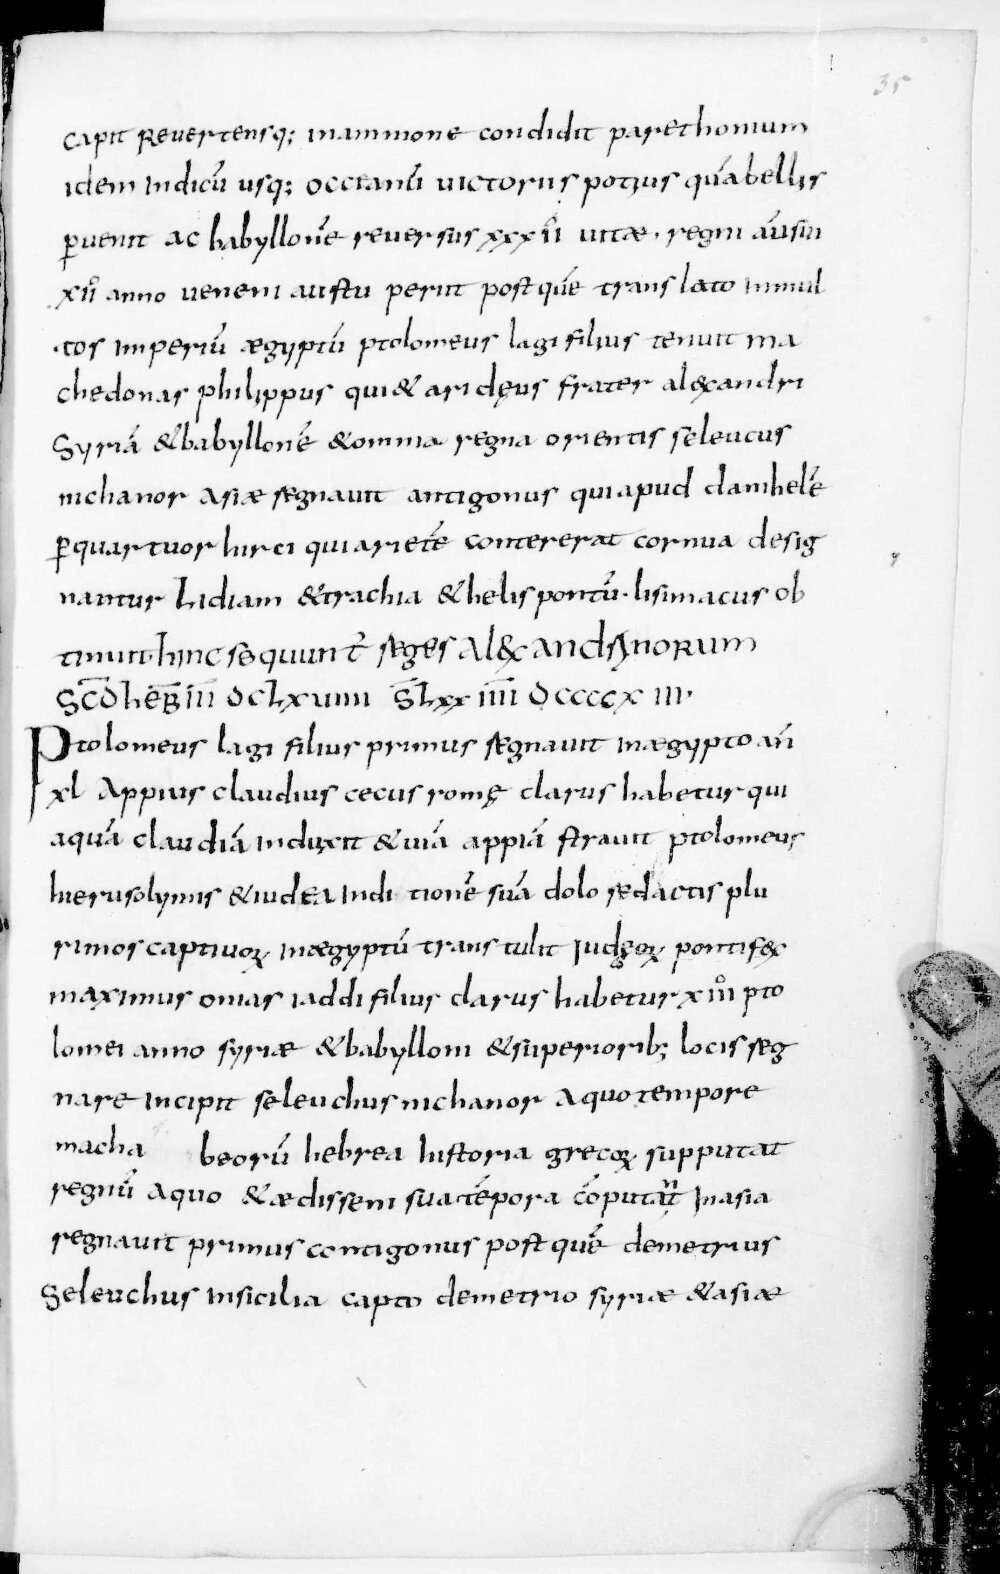 35
capit Revertensq; inammone condidit parethonium
idem indicū usq; occeanū victoriis potius quā bellis
ꝑvenit ac babyllonē reversus xxxII vitæ · regni aūsui
xII anno veneni austu periit postquē translato inmul
tos imperiū ægyptū ptolomeus lagi filius tenuit ma
chedonas philippus qui & arideus frater alexandri
Syriā & babyllonē & omnia regna orientis seleucus
nichanor asiæ regnavit antigonus qui apud danihelē
ꝑ quartuor hirci qui arietē contererat cornua desig
nantur Lidiam & trachia & helispontū · lisimacus ob
tinuit · hinc sequunt̄ reges Alexandrinorum
Sc̄d heb̄ īīī DCLXVIIII S̄Lxx īīīī DCCCCXIII ·
Ptolomeus lagi filius primus regnavit in ægypto añ
xl Appius claudius cecus romę clarus habetur qui
aquā claudiā induxit & viā appiā stravit ptolomeus
hierusolymis & iudea indi tionē suā dolo redactis plu
rimos captivoꝝ in ægyptū trans tulit Iudęoꝝ pontifex
maximus onias iaddi filius clarus habetur xIII pto
lomei anno syriæ & babylloni & superiorib; locis reg
nare incipit seleuchus nichanor A quo tempore
macha beorū hebrea historia grecoꝝ supputat
regnū A quo & ædisseni sua tēpora cōputant Inasia
regnavit primus contigonus postquē demetrius
Seleuchus insicilia capto demetrio syriæ & asiæ